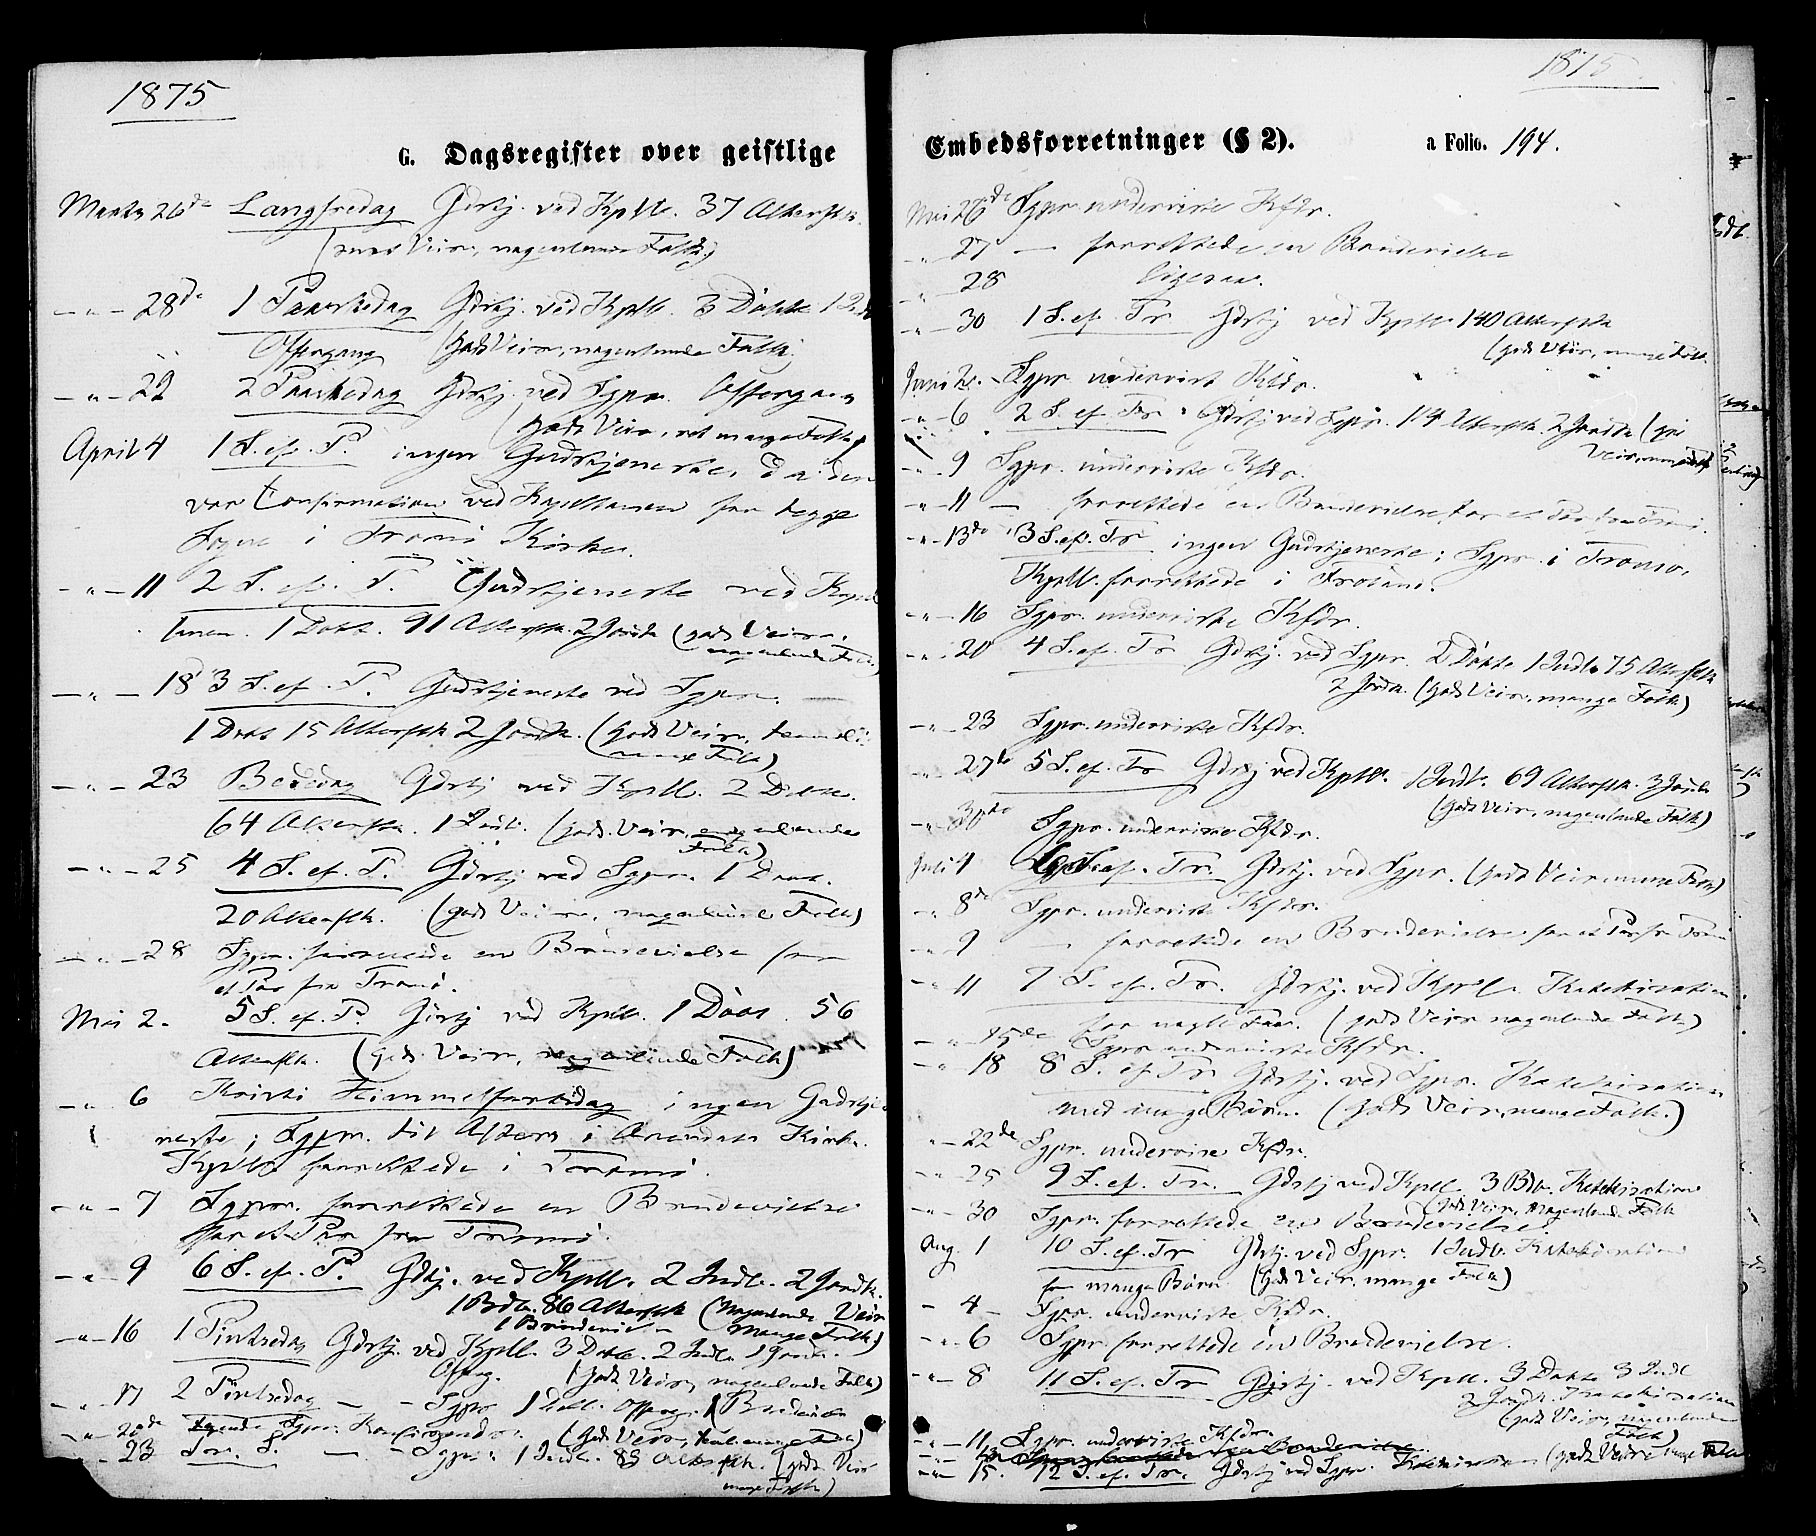 1875
G. Dagsregister over geistlige
Marts 26de Langfredag Gdstj. ved Kpll. 37 Altersgjs.
(smat Veir, nogenlunde Folk)
— " — 28de 1 Paaskedag Gdstj. ved Kpll. 3 Døbte 1 Indl
Offergang (godt Veir, nogenlunde Folk)
— " — 29 2 Paaskedag Gdstj. ved Sgpr. Offergang
(godt Veir, ret mange Folk)
April 4 1 S. ef. P. ingen Gudstjeneste, da den
var Confirmation ved Kapellanen for begge
Sogne i Tromø Kirke.
— " — 11 2 S. ef. P. Gudstjeneste ved Kapel
lanen. 1 Døbt. 91 Altersgk. 2 Jordk (godt Veir,
nogenlunde Folk)
— " — 18 3 S. ef. P. Gudstjeneste ved Sgpr. —
1 Døbt 15 Altersgk 2 Jordk. (godt Veir, temmelig
mange Folk)
— " — 23 Bededag Gdstj ved Kpll. 2 Døbte.
64 Altersgk. 1 Indl. (godt Veir, nogenlunde
Folk)
— " — 25 4 S. ef. P. Gdstj ved Sgpr. 1 Døbt.
20 Altersgk. (godt Veir, nogenlunde Folk)
— " — 28 Sgpr. forrettede en Brudevielse for
et Par fra Tromø.
Mai 2. 5 S. ef. P. Gdstj ved Kpll. 1 Døbt 56
Altersgk. (godt Veir, nogenlunde Folk)
— " — 6 Kristi Himmelfartsdag ingen Gudstje
neste; Sgpr. til Alters i Arendals Kirke.
Kpll. forrettede i Tromø.
— " — 7 Sgpr. forrettede en Brudevielse
for et Par fra Tromø.
— " — 9 6 S. ef. P. Gdstj. ved Kpll. 2 Indl. 2 Jordk.
1 Bdv. 86 Altersgk (Nogenlunde Veir
1 Brudeviel mange Folk)
— " — 16 1 Pintsedag Gdstj. ved Kpll. 3 Døbte. 2 Indl. 1 Jordk.
Offerg. (godt Veir, nogenlunde Folk)
— " — 17 2 Pintsedag — " — Sgpr 1 Døbt. Offerg. 1 Brudevielse
— " — 20de Sgpr. Konfirmander. (godt Veir, mange Folk)
— " — 23 Tr. S. — " — Sgpr. 1 Indl. 83 Altersgk. (godt Veir
mange Folk)
1875
Embedsforretninger (§ 2). a Folio. 194.
Mai 26de Sgpr. underviste Kfdr.
— " — 27 — forrettede en Brudevielse
— " — 28 ligesaa.
— " — 30 1 S. ef. Tr Gdstj ved Kpll. 140 Altersgk
(godt Veir, mange Folk
Juni 2. — Sgpr. underviste Kfdr.
— " — 6 2 S. ef. Tr. Gdstj ved Sgpr. 114 Altersgk. 2 Jordk (
Veir, mange Folk
— " — 9 Sgpr. underviste Kfdr.
— " — 11 — forrettede en Brudevielse for et Par fra Tromø.
— " — 13de 3 S. ef. Tr ingen Gudstjeneste; Sgpr. i Tromø,
Kpll. forrettede i Froland.
— " — 16 Sgpr. underviste Kfdr.
— " — 20 4 S. ef. Tr Gdstj. ved Sgpr. 2 Døbte 1 Indl. 75 Altersgk
2 Jordk. (godt Veir, mange Folk)
— " — 23 Sgpr. underviste Kfdr.
— " — 27de 5 S. ef. Tr Gdstj ved Kpll. 1 Indl. 69 Altersgk. 3 Jordk
(godt Veir, nogenlunde Folk)
— " — 30te Sgpr. underviste Kfdr.
Juli 4 6 S. ef. Tr. Gdstj. ved Sgpr. (godt Veir, mange Folk)
— " — 8de Sgpr. underviste Kfdr.
— " — 9 — forrettede en Brudevielse for et Par fra Tromø
— " — 11 7 S. ef. Tr. Gdstj. ved Kpll. Katekisation
for nogle Faa. (godt Veir nogenlunde Folk)
— " — 15de Sgpr. underviste Kfdr.
— " — 18 8 S. ef. Tr. Gdstj. ved Sgpr. Katekisation
med mange Børn. (godt Veir, mange Folk.)
— " — 22de Sgpr. underviste Kfdr.
— " — 25 9 S. ef. Tr. Gdstj ved Kpll 3 Bdv. Katekisation
(godt Veir, nogenlunde Folk
— " — 30 Sgpr. forrettede en Brudevielse
Aug. 1 10 S. ef. Tr Gdstj. ved Sgpr. 1 Indl. Katekisation
for mange Børn. (godt Veir, mange Folk)
— 4 — Sgpr. underviste Kfdr.
— " — 6 Sgpr forrettede en Brudevielse.
— " — 8 11 S. ef. Tr Gdstj. ved Kpll. 3 Døbte 3 Indl
2 Jordk. Katekisation
(godt Veir, nogenlunde
Folk)
— " — 11 Sgpr. underviste Kfdr.
— " — 13 Sgpr. forrettede en Brudevielse.
— " — 15. 12 S. ef. Tr. Gdstj ved Sgpr. Katekisation (godt Veir mange Folk